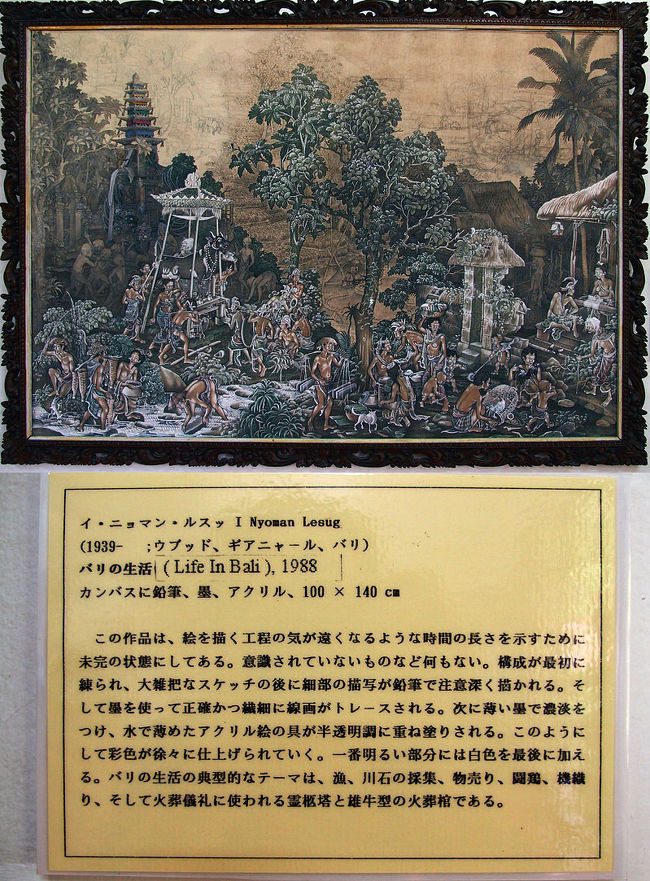 イ・ニョマン・ルスッ I Nyoman Lesug
(1939-　;ウブッド、ギアニャール、バリ)
バリの生活 ( Life In Bali ), 1988
カンバスに鉛筆、墨、アクリル、100 × 140 cm
この作品は、絵を描く工程の気が遠くなるような時間の長さを示すために
未完の状態にしてある。意識されていないものなど何もない。構成が最初に
練られ、大雑把なスケッチの後に細部の描写が鉛筆で注意深く描かれる。そ
して墨を使って正確かつ繊細に線画がトレースされる。次に薄い墨で濃淡を
つけ、水で薄めたアクリル絵の具が半透明調に重ね塗りされる。このように
して彩色が徐々に仕上げられていく。一番明るい部分には白色を最後に加え
る。バリの生活の典型的なテーマは、漁、川石の採集、物売り、闘鶏、機織
り、そして火葬儀礼に使われる霊柩塔と雄牛型の火葬棺である。